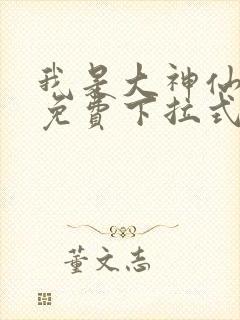 我是大神仙
免费下拉式
董文志